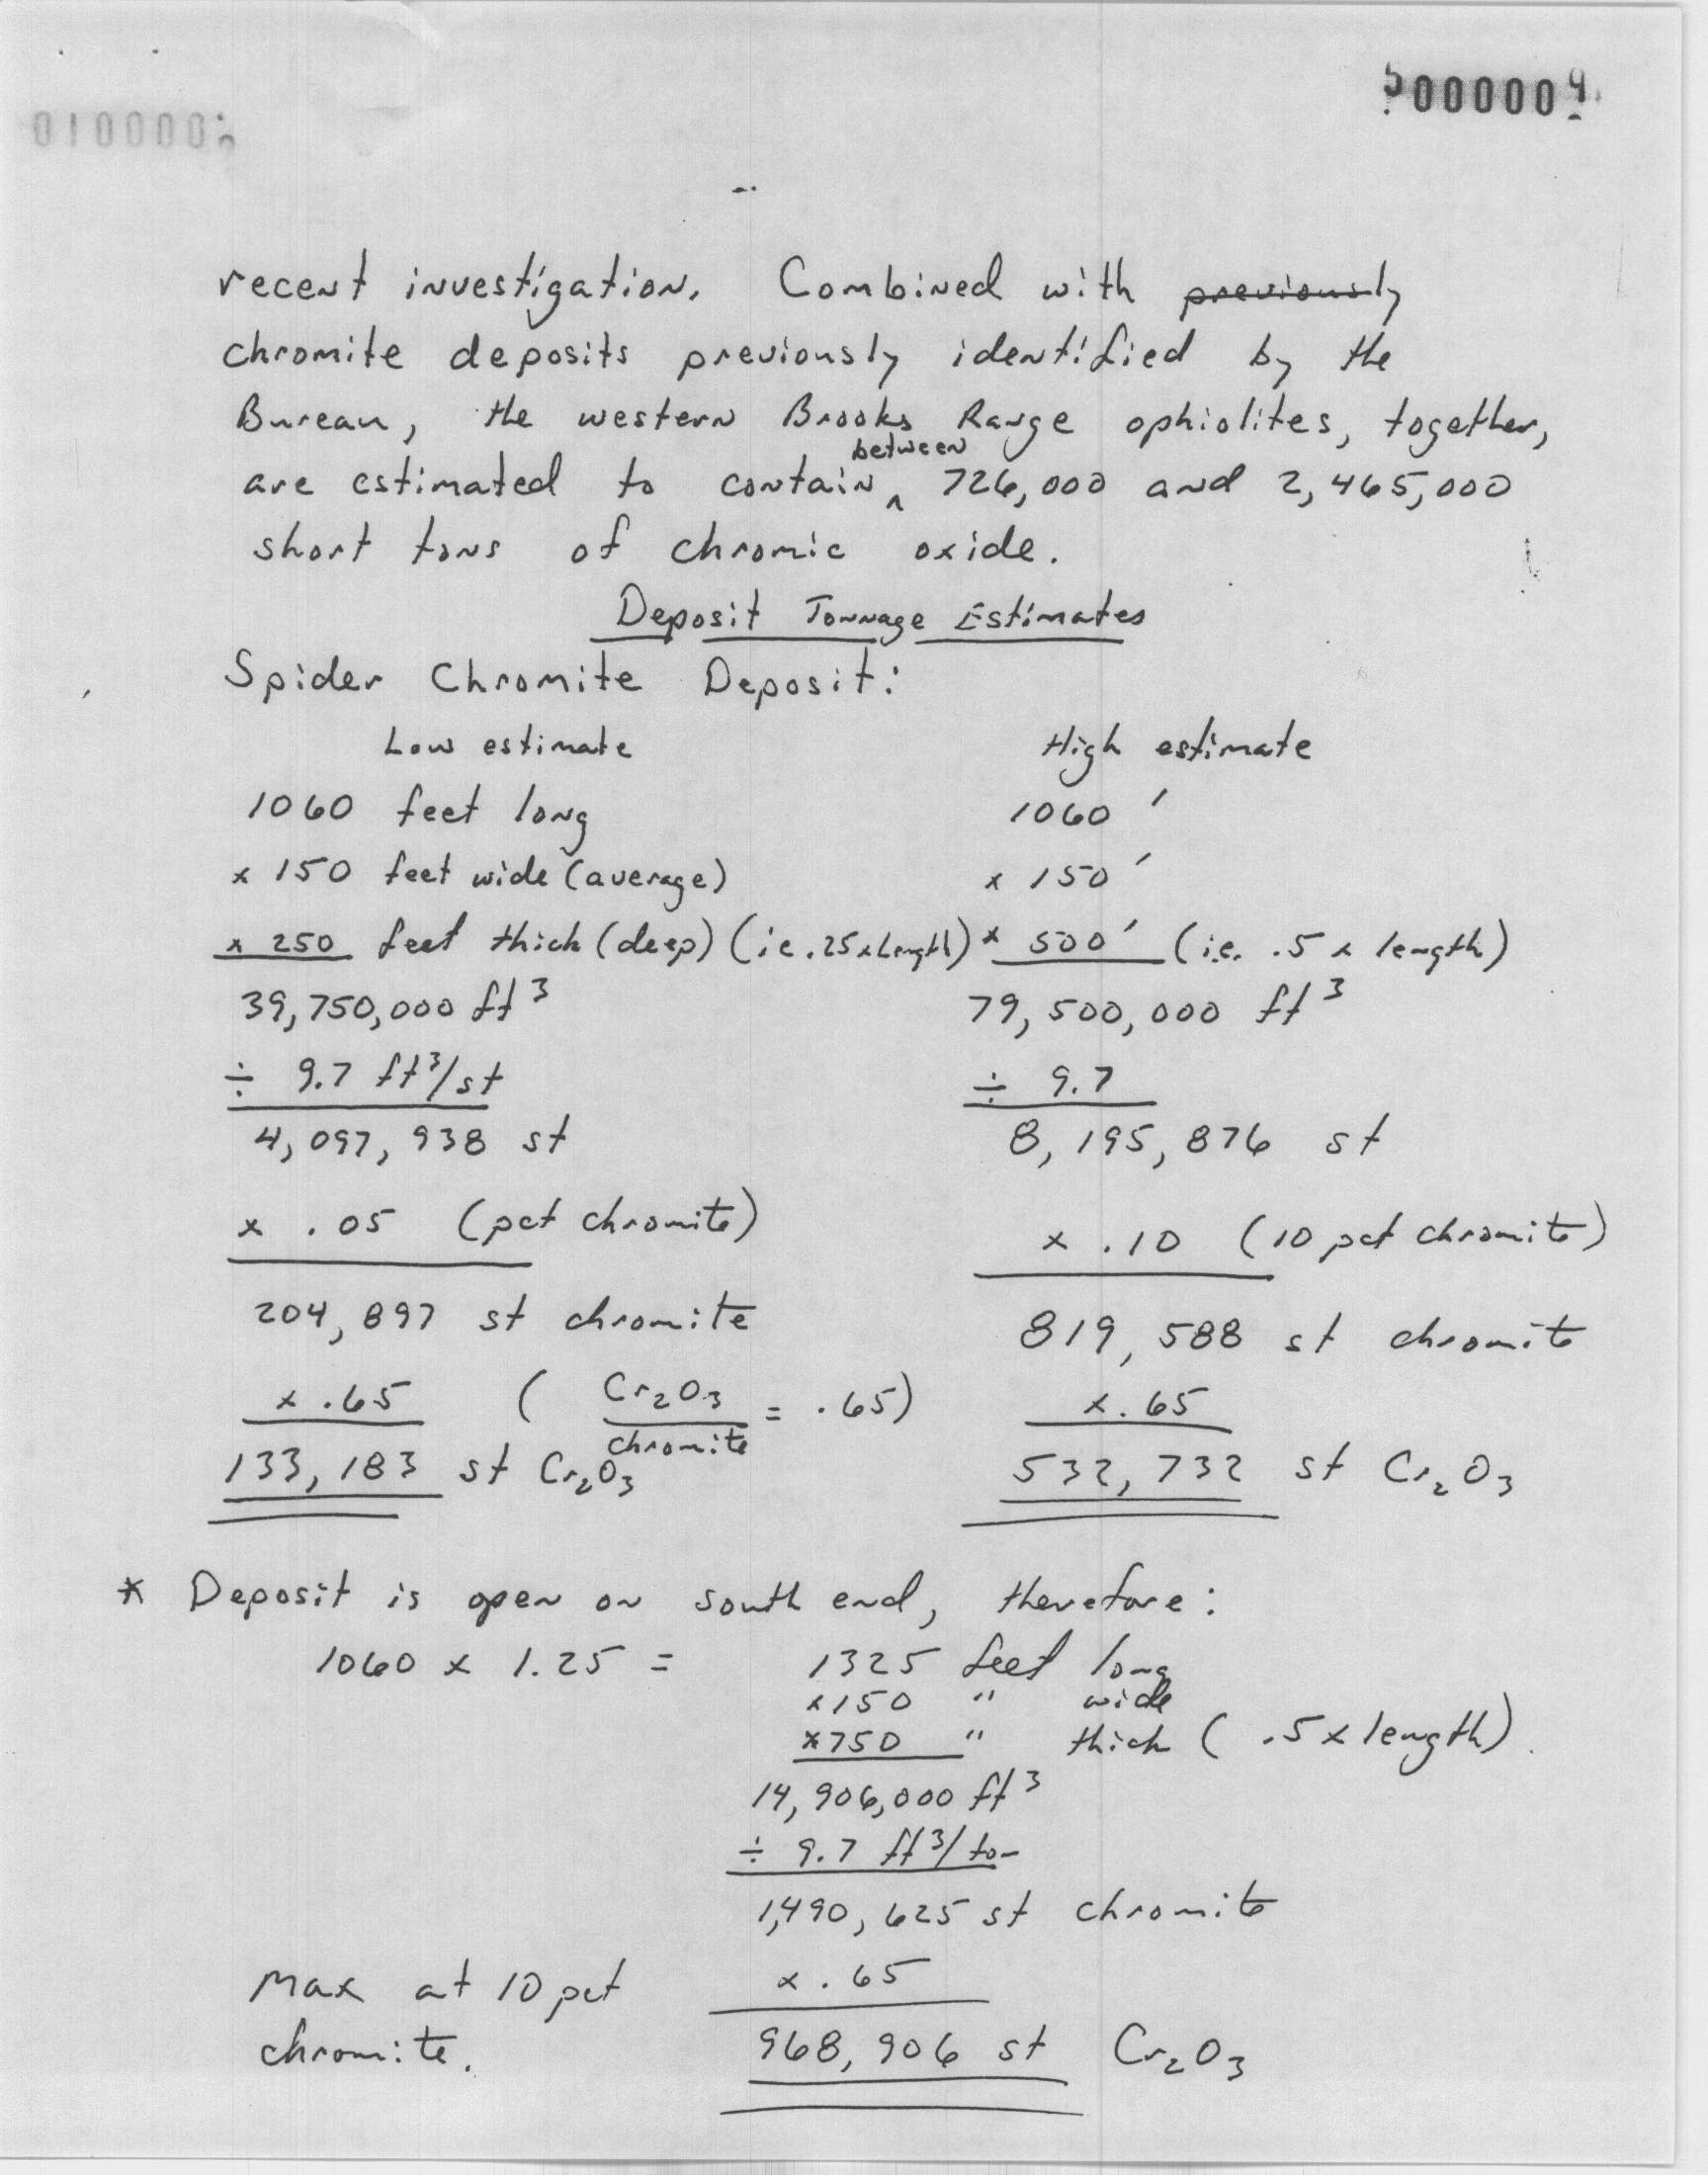 010000
000000
recent investigation. Combined with previously
chromite deposits previously identified by the
Bureau, the western Brooks Range ophiolites, together,
between
are estimated to contain ^ 726,000 and 2,465,000
short tons of chromic oxide.
Deposit Tonnage Estimates
Spider Chromite Deposit:
Low estimate High estimate
1060 feet long 1060 '
x 150 feet wide (average) x 150 '
x 250 feet thick (deep) (ie .25 x Length) x 500 ' (i.e. .5 x length)
39,750,000 ft³ 79,500,000 ft³
÷ 9.7 ft³/st ÷ 9.7
4,097,938 st 8,195,876 st
x .05 (pct chromite) x .10 (10 pct chromite)
204,897 st chromite 819,588 st chromite
x .65 ( Cr₂O₃ / chromite = .65) x .65
133,183 st Cr₂O₃ 532,732 st Cr₂O₃
* Deposit is open on south end, therefore:
1060 x 1.25 = 1325 feet long
x 150 " wide
x 750 " thick ( .5 x length)
14,906,000 ft³
÷ 9.7 ft³/ton
1,490,625 st chromite
Max at 10 pct x .65
chromite. 968,906 st Cr₂O₃